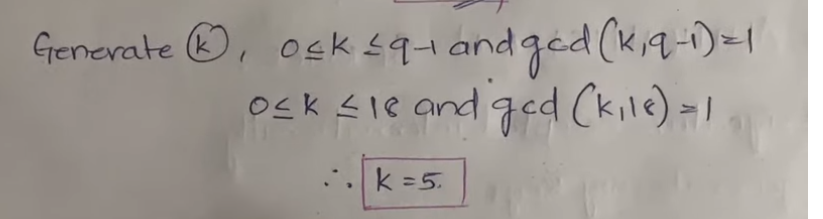 Generate k, 0≤k ≤q-1 and gcd(k,q-1)=1
0≤k ≤ 18 and gcd (k,18)=1
∴ k=5.